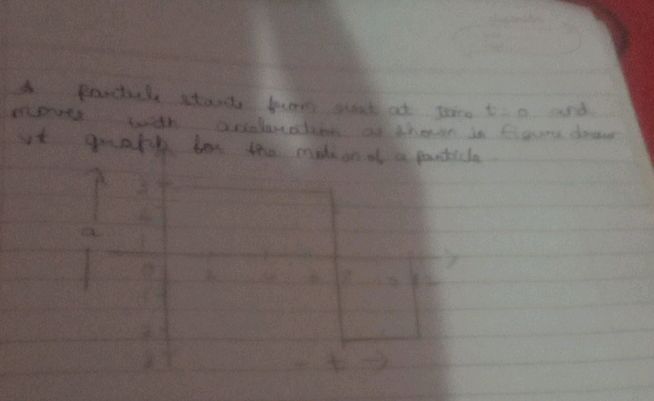 A particle starts from rest at time t = 0 and
moves with acceleration as shown in figure draw
vt graph for the motion of a particle
3
a
0
2
t →